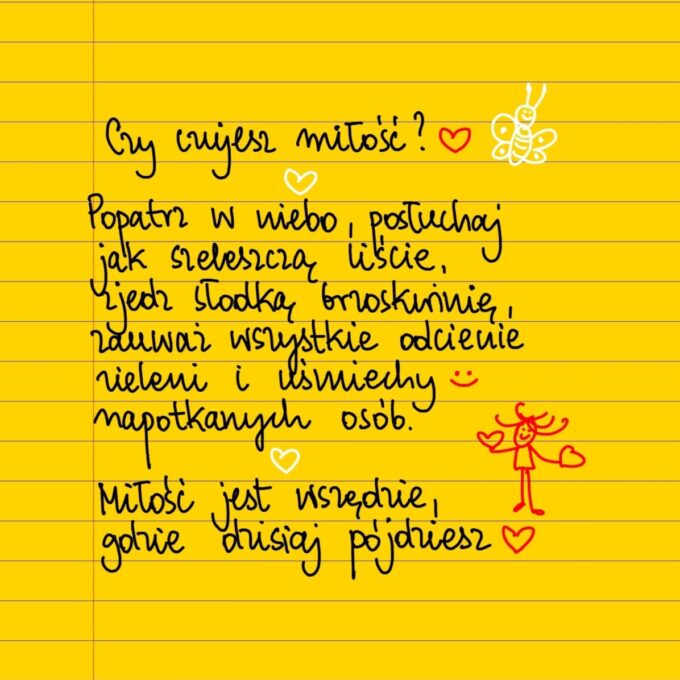 Czy czujesz miłość?
Popatrz w niebo, posłuchaj
jak szeleszczą liście,
zjedz słodką brzoskwinię,
zauważ wszystkie odcienie
zieleni i uśmiechy
napotkanych osób.
Miłość jest wszędzie,
gdzie dzisiaj pójdziesz